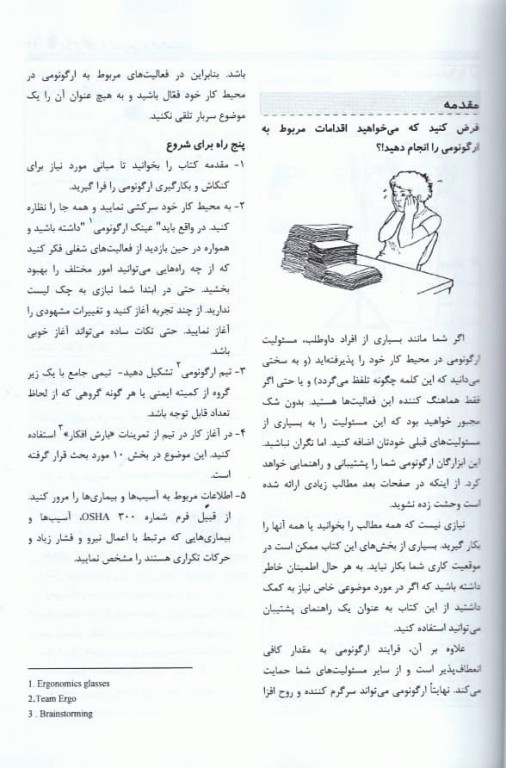 مقدمه
فرض کنید که می‌خواهید اقدامات مربوط به
ارگونومی را انجام دهید!؟
اگر شما مانند بسیاری از افراد داوطلب، مسئولیت
ارگونومی در محیط کار خود را پذیرفته‌اید (و به سختی
می‌دانید که این کلمه چگونه تلفظ می‌گردد) و یا حتی اگر
فقط هماهنگ کننده این فعالیت‌ها هستید. بدون شک
مجبور خواهید بود که این مسئولیت را به بسیاری از
مسئولیت‌های قبلی خودتان اضافه کنید. اما نگران نباشید.
این ابزارگان ارگونومی شما را پشتیبانی و راهنمایی خواهد
کرد. از اینکه در صفحات بعد مطالب زیادی ارائه شده
است وحشت زده نشوید.
نیازی نیست که همه مطالب را بخوانید یا همه آنها را
بکار گیرید. بسیاری از بخش‌های این کتاب ممکن است در
موقعیت کاری شما بکار نیاید. به هر حال اطمینان خاطر
داشته باشید که اگر در مورد موضوعی خاص نیاز به کمک
داشتید از این کتاب به عنوان یک راهنمای پشتیبان
می‌توانید استفاده کنید.
علاوه بر آن، فرایند ارگونومی به مقدار کافی
انعطاف‌پذیر است و از سایر مسئولیت‌های شما حمایت
می‌کند. نهایتاً ارگونومی می‌تواند سرگرم کننده و روح افزا
باشد. بنابراین در فعالیت‌های مربوط به ارگونومی در
محیط کار خود فعّال باشید و به هیچ عنوان آن را یک
موضوع سربار تلقی نکنید.
پنج راه برای شروع
۱- مقدمه کتاب را بخوانید تا مبانی مورد نیاز برای
کنکاش و بکارگیری ارگونومی را فرا گیرید.
۲- به محیط کار خود سرکشی نمایید و همه جا را نظاره
کنید. در واقع باید" عینک ارگونومی۱ "داشته باشید و
همواره در حین بازدید از فعالیت‌های شغلی فکر کنید
که از چه راه‌هایی می‌توانید امور مختلف را بهبود
بخشید. حتی در ابتدا شما نیازی به چک لیست
ندارید. از چند تجربه آغاز کنید و تغییرات مشهودی را
آغاز نمایید. حتی نکات ساده می‌تواند آغاز خوبی
باشد.
۳- تیم ارگونومی۲ تشکیل دهید- تیمی جامع با یک زیر
گروه از کمیته ایمنی یا هر گونه گروهی که از لحاظ
تعداد قابل توجه باشد.
۴- در آغاز کار در تیم از تمرینات «بارش افکار»۳ استفاده
کنید. این موضوع در بخش ۱۰ مورد بحث قرار گرفته
است.
۵- اطلاعات مربوط به آسیب‌ها و بیماری‌ها را مرور کنید.
از قبیل فرم شماره ۳۰۰ OSHA، آسیب‌ها و
بیماری‌هایی که مرتبط با اعمال نیرو و فشار زیاد و
حرکات تکراری هستند را مشخص نمایید.
1. Ergonomics glasses
2.Team Ergo
3 . Brainstorming